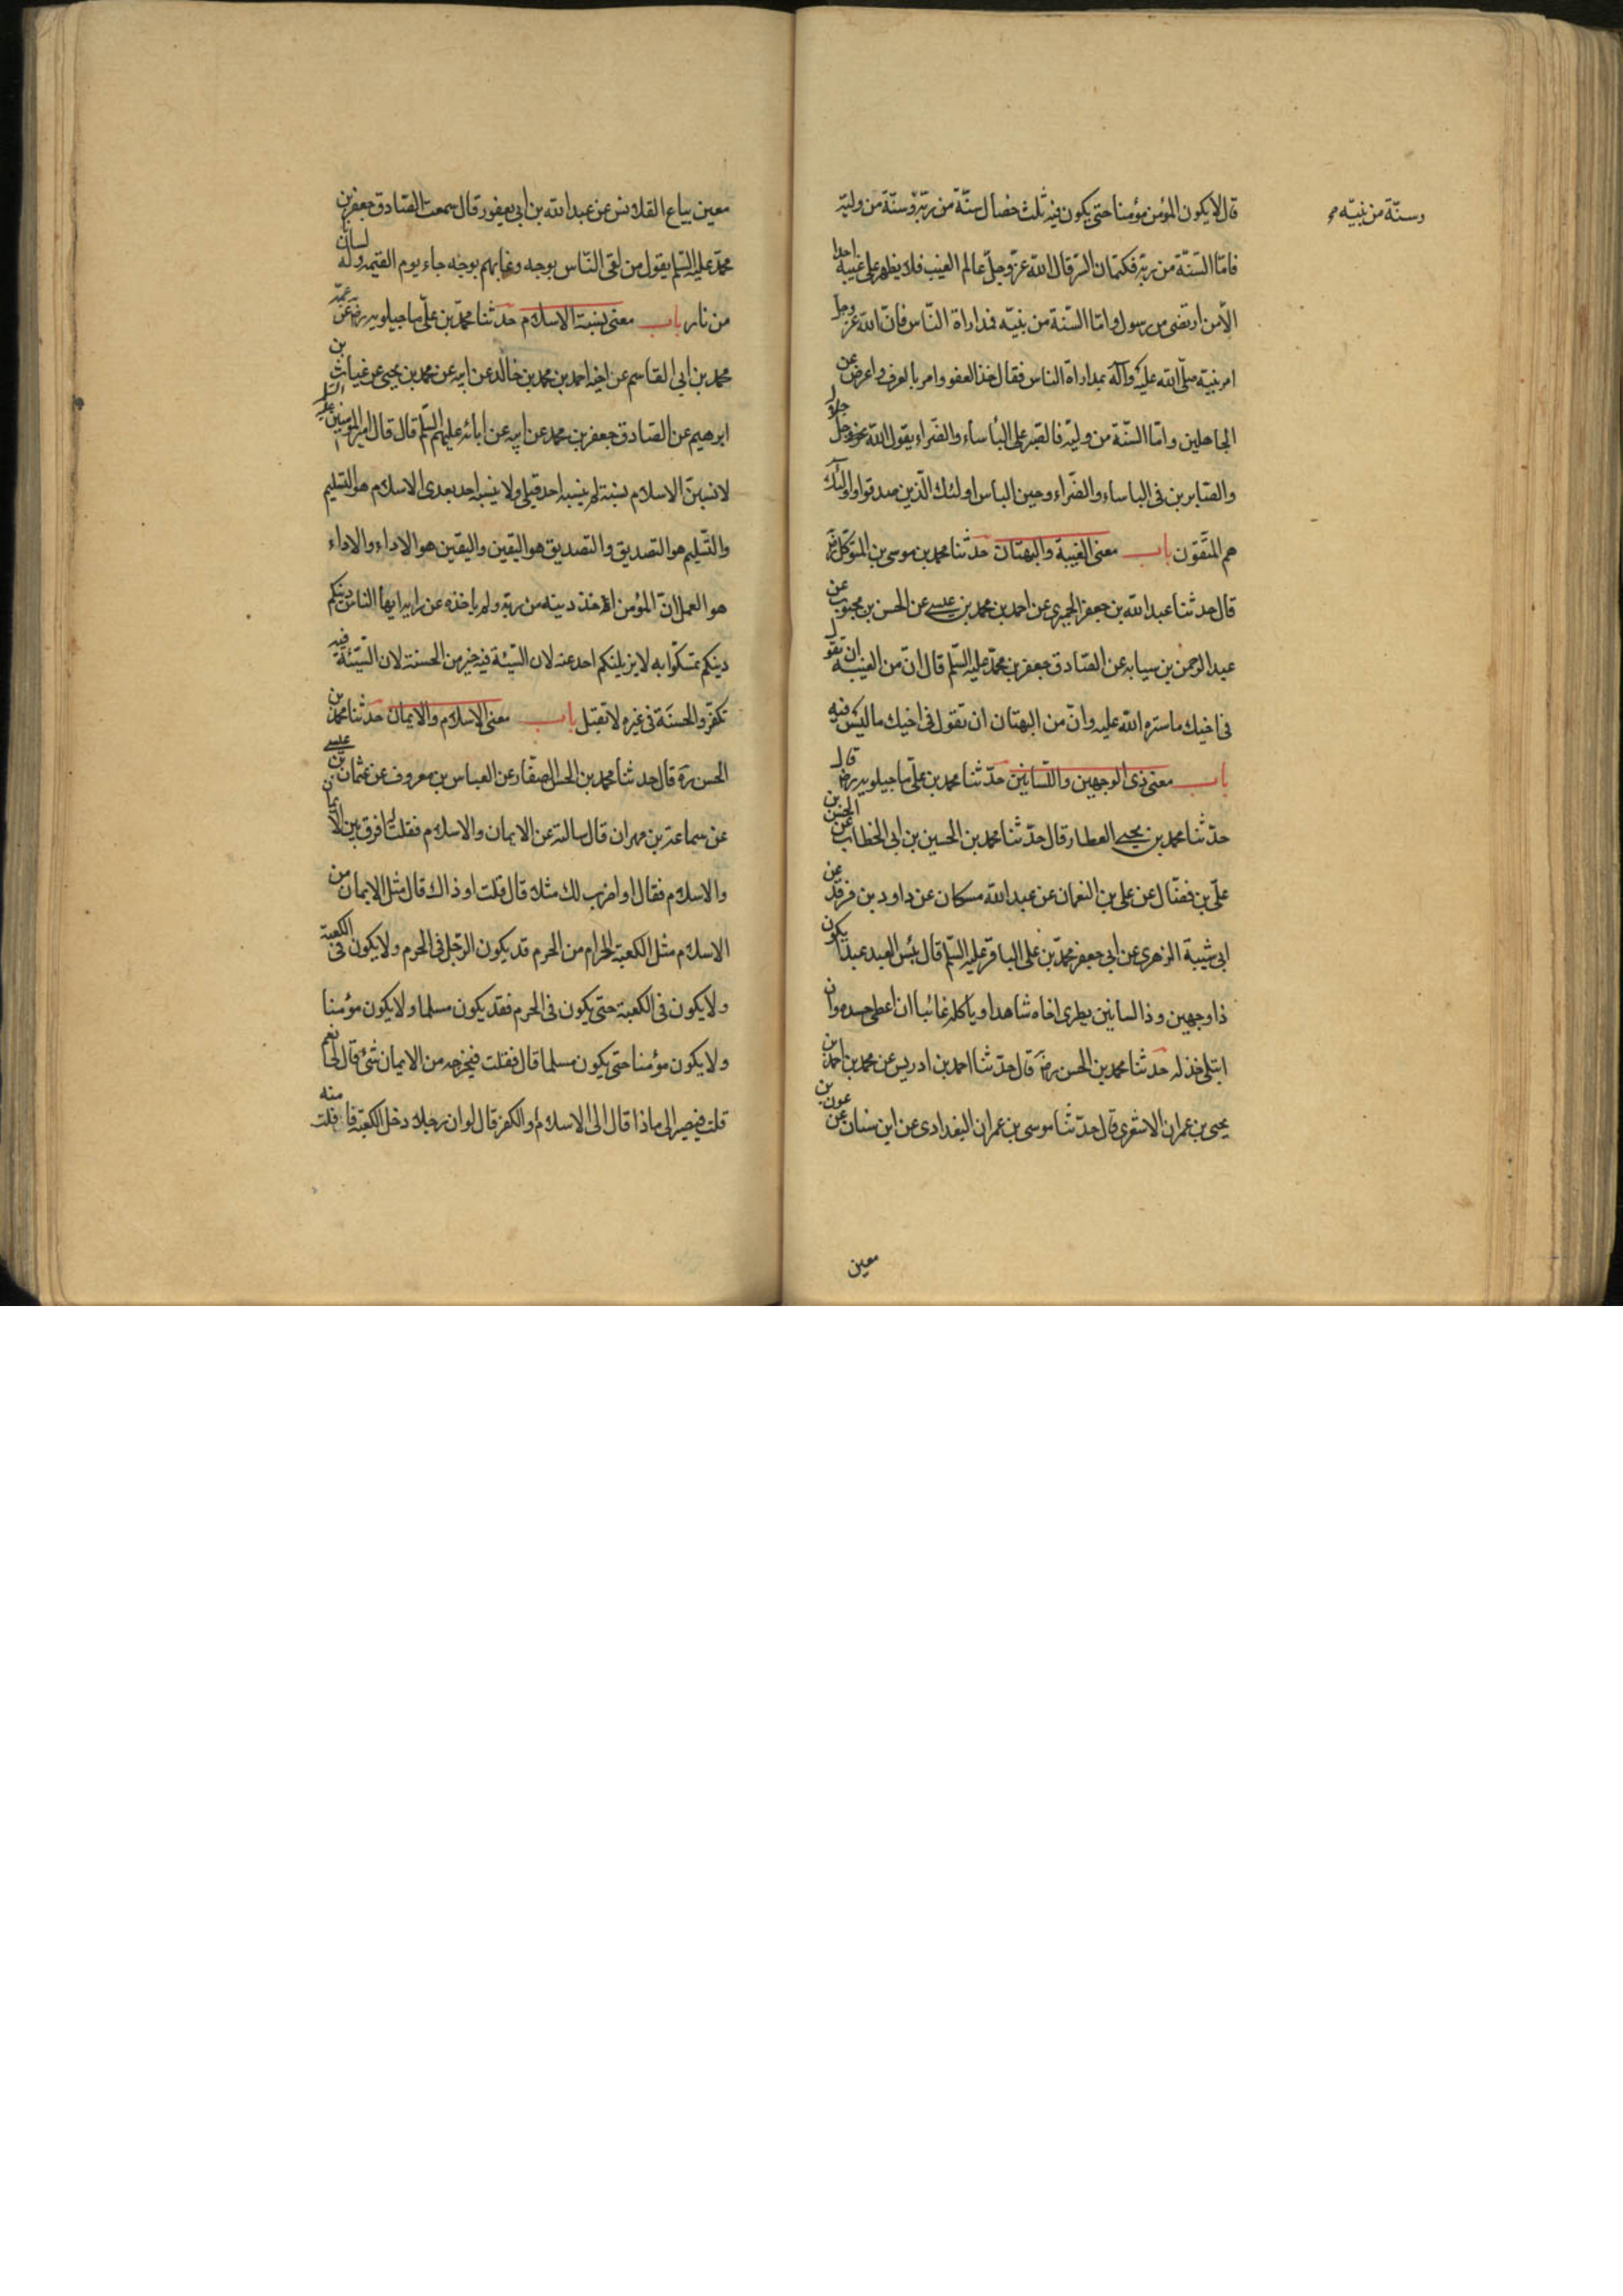 قال لا يكون المؤمن مؤمنا حتى يكون فيه ثلث خصال سنّة من ربّه وسنّة من وليّه
وسنّة من نبيّه
فامّا السّنّة من ربّه فكتمان السّر قال الله عزّ وجلّ عالم الغيب فلا يظهر على غيبه احدا
الّا من ارتضى من رسول وامّا السّنة من نبيّه فمداراة النّاس فانّ الله عزّ وجل
امر نبيّه صلّى الله عليه وآله بمداراة الناس فقال خذ العفو وامر بالعرف واعرض عن
الجاهلين وامّا السّنّة من وليّه فالصّبر على البأساء والضّراء يقول الله عزوجل
والصّابرين في الباساء والضّراء وحين الباس اولئك الّذين صدقوا واولئك
هم المتّقون باب معنى الغيبة والبهتان حدّثنا محمد بن موسى بن المتوكّل ره
قال حدثنا عبد الله بن جعفر الحميرى عن احمد بن محمد بن عيسى عن الحسن بن محبوب عن
عبد الرحمن بن سيابه عن الصّادق جعفر بن محمّد عليه السّلم قال انّ من الغيبة ان تقول
فى اخيك ما ستره الله عليه وانّ من البهتان ان تقول فى اخيك ما ليس فيه
باب معنى ذى الوجهين واللّسانين حدّثنا محمد بن علىّ ماجيلويه رض قال
حدّثنا محمد بن يحيى العطار قال حدّثنا محمد بن الحسين بن ابى الخطاب عن الحسن بن
علىّ بن فضّال عن على بن النعمان عن عبد الله مسكان عن داود بن فرقد عن
ابى شيبة الزهرى عن ابى جعفر محمّد بن على الباقر عليه السّلم قال بئس العبد عبدا يكون
ذا وجهين وذا لسانين يطرى اخاه شاهدا وياكله غائبا ان اعطى حسده وان
ابتلى خذله حدّثنا محمد بن الحسن رض قال حدّثنا احمد بن ادريس عن محمد بن احمد بن
يحيى بن عمران الاشعرى قال حدّثنا موسى بن عمران البغدادى عن ابن سنان عن عون بن
معين
معين بيّاع القلانس عن عبد الله بن ابى يعفور قال سمعت الصّادق جعفر بن
محمّد عليه السّلم يقول من لقى النّاس بوجه وغابهم بوجه جاء يوم القيمه وله لسان
من نار باب معنى نسبة الاسلام حدّثنا محمّد بن علىّ ماجيلويه رض عن عمّه
محمد بن ابى القاسم عن اخيه احمد بن محمد بن خالد عن ابيه عن محمد بن يحيى عن غياث بن
ابرهيم عن الصّادق جعفر بن محمد عن ابيه عن ابائه عليهم السّلم قال قال امير المومنين عليه السّلم
لانسبنّ الاسلام نسبة لم ينسبه احد قبلى ولا ينسبه احد بعدى الاسلام هو التّسليم
والتّسليم هو التصديق والتصديق هو اليقين واليقين هو الاداء والاداء
هو العمل انّ المؤمن اخذ دينه من ربّه ولم ياخذه عن رايه ايها الناس دينكم
دينكم تمسّكوا به لا يزيلنكم احد عنه لان السّيئة فيه خير من الحسنة لان السّيّئة فيه
تكفّر والحسنة فى غيره لا تقبل باب معنى الاسلام والايمان حدّثنا محمد بن
الحسن ره قال حدثنا محمد بن الحسن الصفّار عن العباس بن معروف عن عثمان بن عيسى
عن سماعة بن مهران قال سالته عن الايمان والاسلام فقلت افرق بين الايمان
والاسلام فقال او اضرب لك مثلا قال قلت او ذاك قال مثل الايمان من
الاسلام مثل الكعبة الحرام من الحرم قد يكون الرّجل فى الحرم ولا يكون فى الكعبة
ولا يكون فى الكعبة حتى يكون فى الحرم فقد يكون مسلما ولا يكون مؤمنا
ولا يكون مؤمنا حتى يكون مسلما قال فقلت فيخرجه من الايمان شئ قال لى نعم
قلت فيصير الى ماذا قال الى الاسلام او الكفر قال لو ان رجلا دخل الكعبة فافلت منه